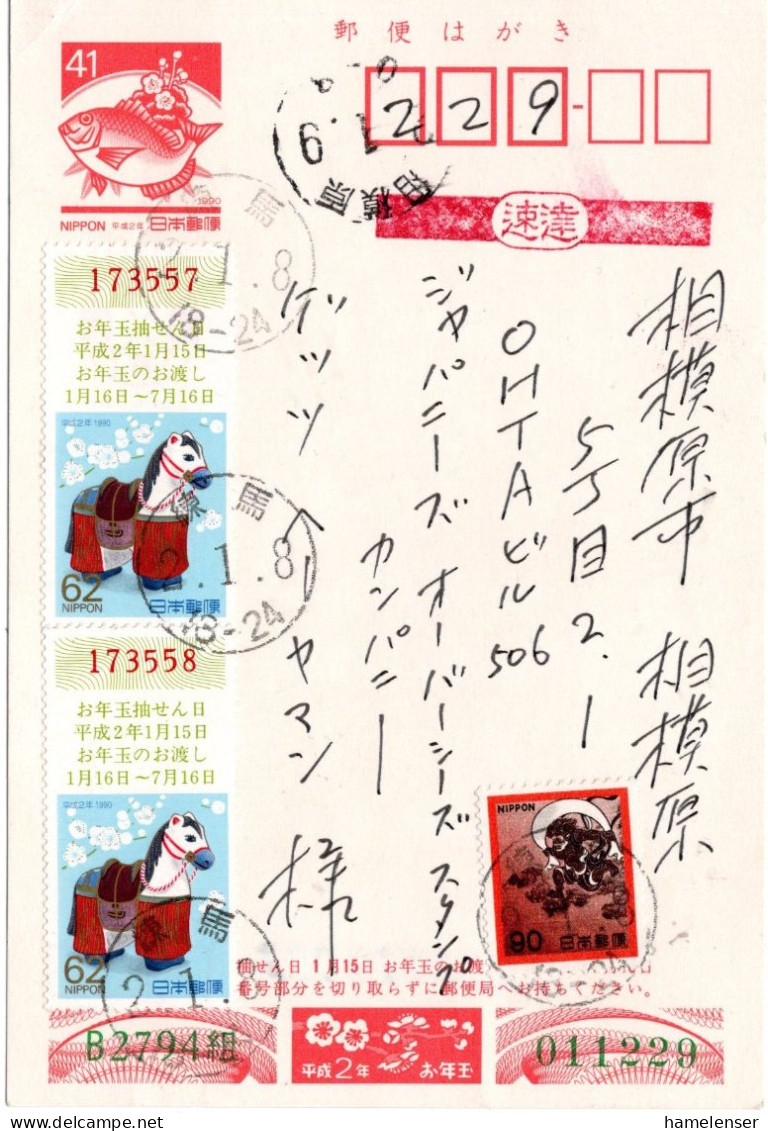 郵便はがき
41
1990
NIPPON 平成2年 日本郵便
229-
相模原
速達
173557
お年玉抽せん日
平成2年1月15日
お年玉のお渡し
1月16日〜7月16日
平成2年1990
62
NIPPON 日本郵便
173558
お年玉抽せん日
平成2年1月15日
お年玉のお渡し
1月16日〜7月16日
平成2年1990
62
NIPPON 日本郵便
馬
2.1.8
18-24
練馬
2.1.8
18-24
練馬
2.1.8
相模原市 相模原
5丁目2.1
OHTAビル506
ジャパニーズ オーバーシーズ スタンプ
カンパニー
ゲッツ ヘーヤマン 様
NIPPON
90 日本郵便
抽せん日 1月15日 お年玉のお渡
番号部分を切り取らずに郵便局へお持ちください。
B2794組
平成2年 お年玉
011229
hamelenser